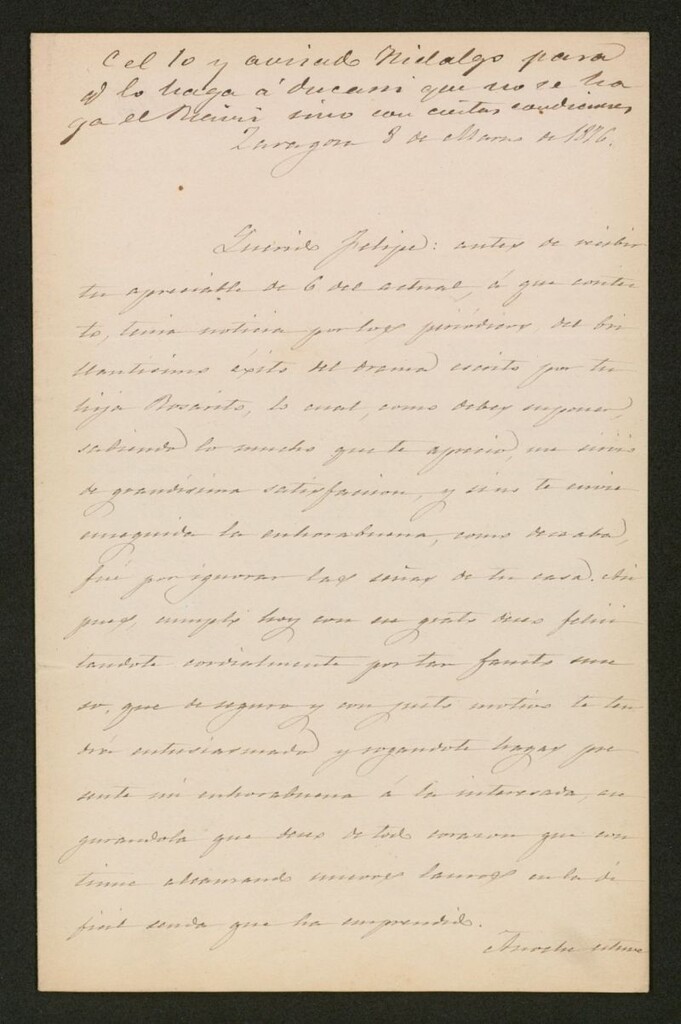 Cel 10 y avisado Hidalgo para
q lo haga á Ducassi que no se ha
ga el Rienzi sino con ciertas condiciones
Zaragoza 8 de Marzo de 1876.
Querido Felipe: antes de recibir
tu apreciable de 6 del actual, á que contes
to, tenia noticia por los periódicos, del bri
llantisimo éxito del drama escrito por tu
hija Rosarito, lo cual, como debes suponer,
sabiendo lo mucho que te aprecio, me sirvió
de grandisima satisfaccion, y si no te envie
enseguida la enhorabuena, como deseaba,
fué por ignorar las señas de tu casa. Asi
pues, cumplo hoy con ese grato deber felici
tandote cordialmente por tan fausto suce
so, que de seguro y con justo motivo te ten
drá entusiasmado y rogandote hagas pre
sente mi enhorabuena á la interesada, ase
gurandola que deseo de todo corazon que con
tinue alcanzando nuevos lauros en la di
ficil senda que ha emprendido.
Anoche estuve